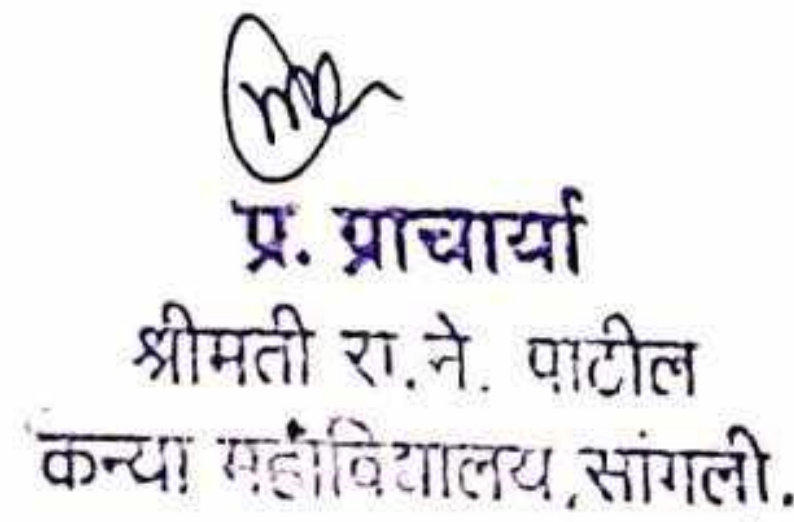 प्र. प्राचार्या
श्रीमती रा.ने. पाटील
कन्या महाविद्यालय, सांगली.